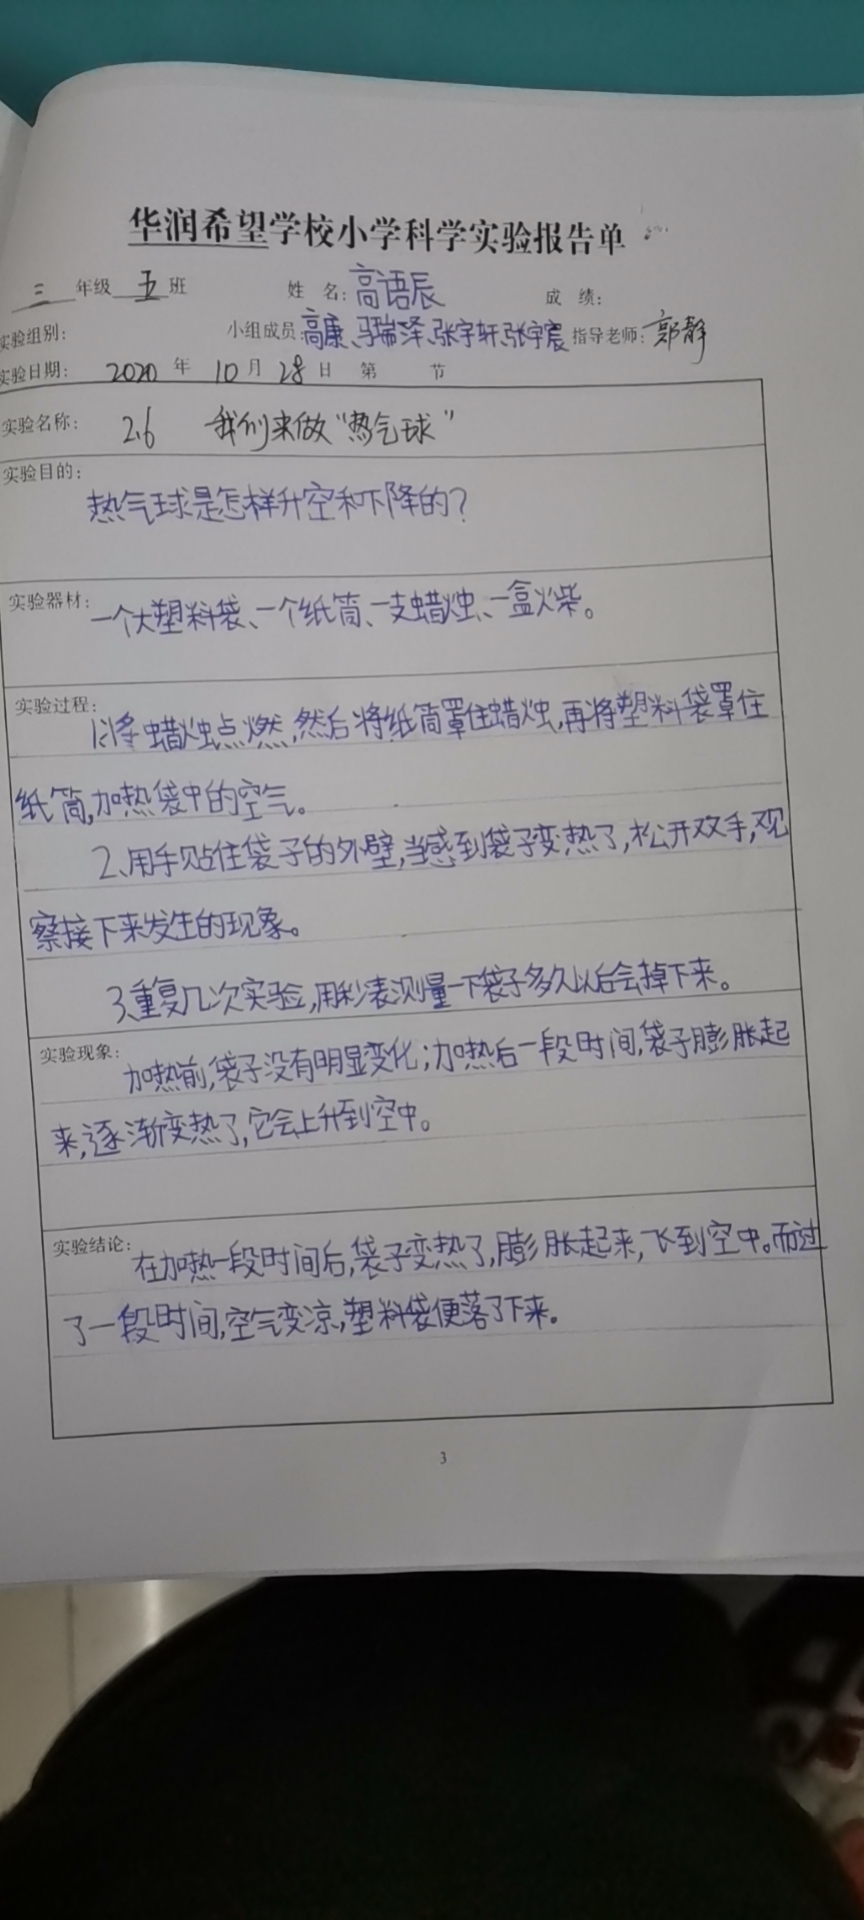 华润希望学校小学科学实验报告单
三年级 五班 姓 名: 高语辰 成 绩:
实验组别: 小组成员: 高康、马瑞泽、张宇轩、张宇宸 指导老师: 郭静
实验日期: 2020 年 10 月 28 日 第 节
实验名称: 2.6 我们来做“热气球”
实验目的:
热气球是怎样升空和下降的?
实验器材: 一个大塑料袋、一个纸筒、一支蜡烛、一盒火柴。
实验过程:
1、将蜡烛点燃,然后将纸筒罩住蜡烛,再将塑料袋罩住
纸筒,加热袋中的空气。
2、用手贴住袋子的外壁,当感到袋子变热了,松开双手,观
察接下来发生的现象。
3、重复几次实验,用秒表测量一下袋子多久以后会掉下来。
实验现象: 加热前,袋子没有明显变化;加热后一段时间,袋子膨胀起
来,逐渐变热了,它会上升到空中。
实验结论: 在加热一段时间后,袋子变热了,膨胀起来,飞到空中。而过
了一段时间,空气变凉,塑料袋便落了下来。
3